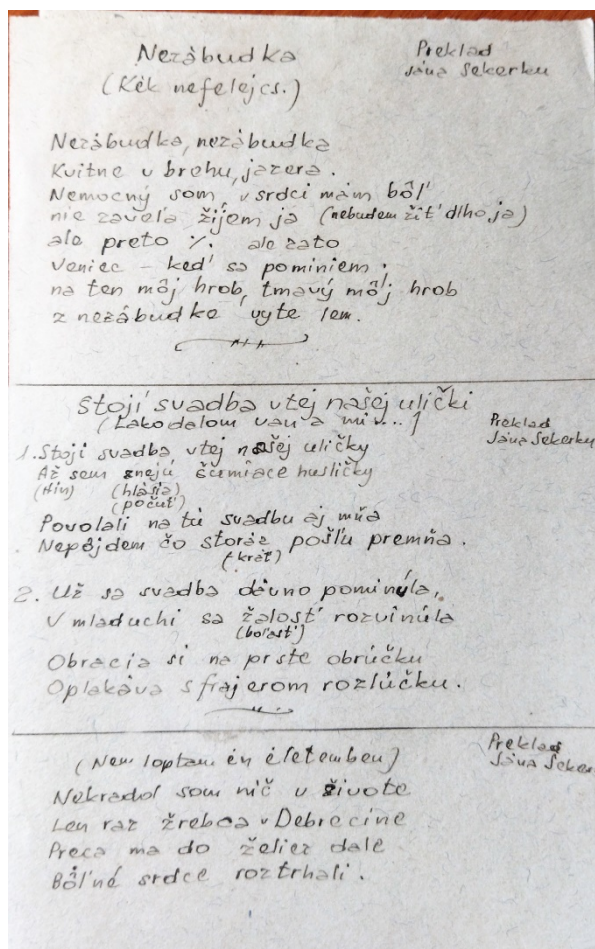 Nezábudka
(Kék nefelejcs.)
Preklad
Jána Sekerku
Nezábudka, nezábudka
Kvitne v brehu, jazera.
Nemocný som, v srdci mám bôľ
nie zaveľa žijem ja (nebudem žiť dlho ja)
ale preto ·/. ale zato
Veniec – keď sa pominiem;
na ten môj hrob, tmavý môj hrob
z nezábudke vyte lem.
Stojí svadba vtej našej ulički
(Lakodalom van a mi...)
Preklad
Jána Sekerku
1. Stoji svadba vtej našej uličky
Až sem znejú šumiace husličky
(Hin) (hlásia)
(počuť)
Povolali na tú svadbu aj mňa
Nepôjdem čo storáz pošľu premňa.
(krát)
2. Už sa svadba dávno pominula,
V mladuchi sa žalosť rozvinúla
(bolasť)
Obracia si na prste obrúčku
Oplakáva sfrajerom rozlúčku.
(Nem loptam én életemben)
Preklad
Jána Seker
Nekradol som nič v živote
Len raz žrebca v Debrecíne
Preca ma do želiez dale
Bôľné srdce roztrhali.